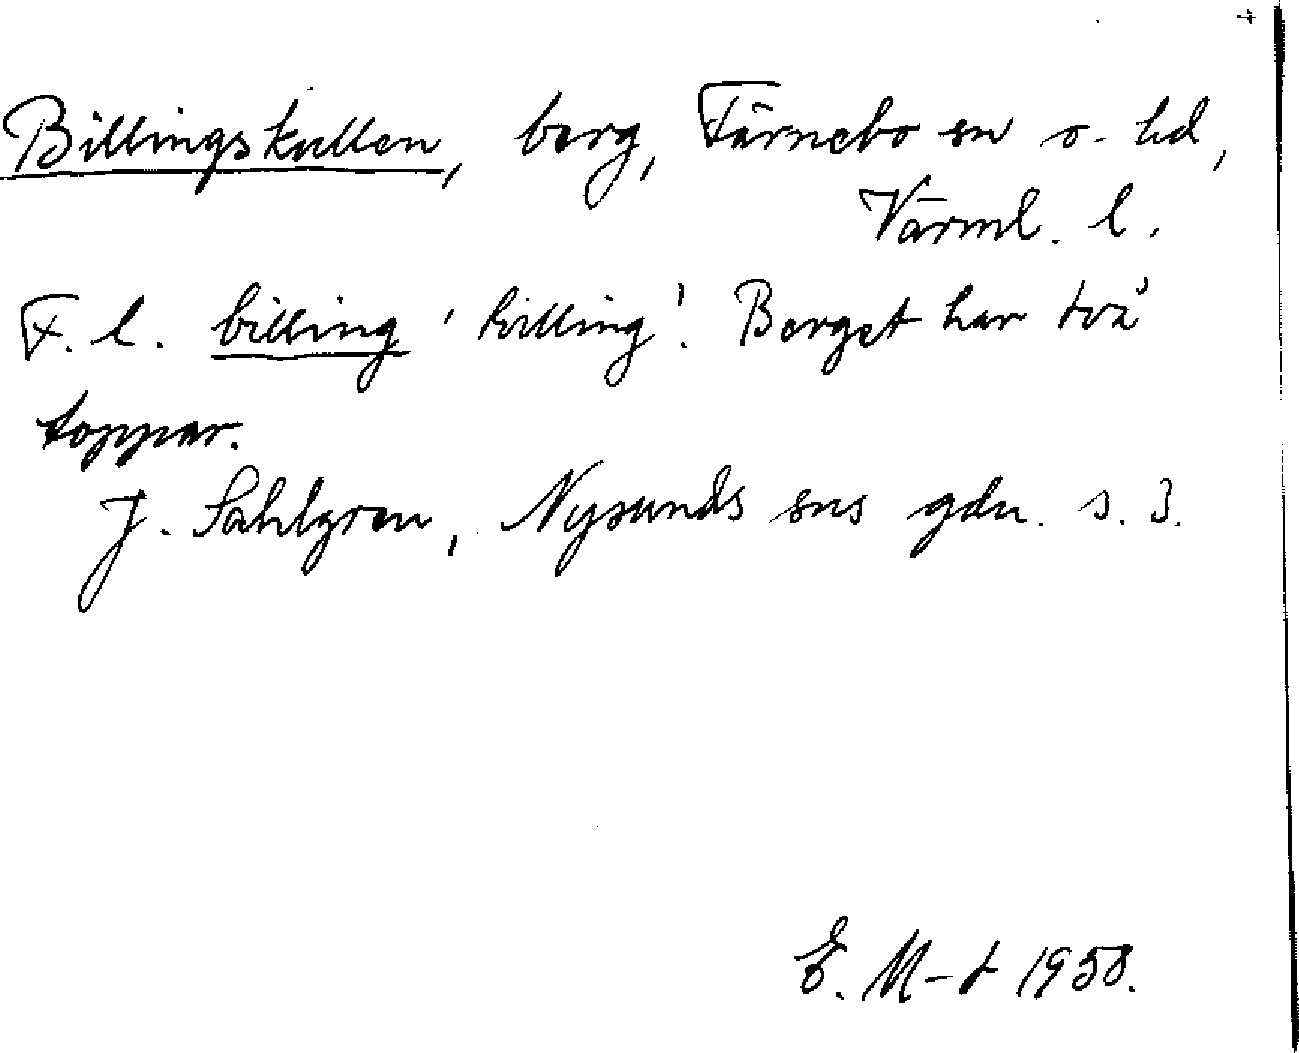 Billingskullen, berg, Färnebo sn o. hd,
Värml. l.
F. l. billing 'killing'. Berget har två
toppar.
J. Sahlgren, Nysunds sns gdn. s. 3.
E. M-t 1958.